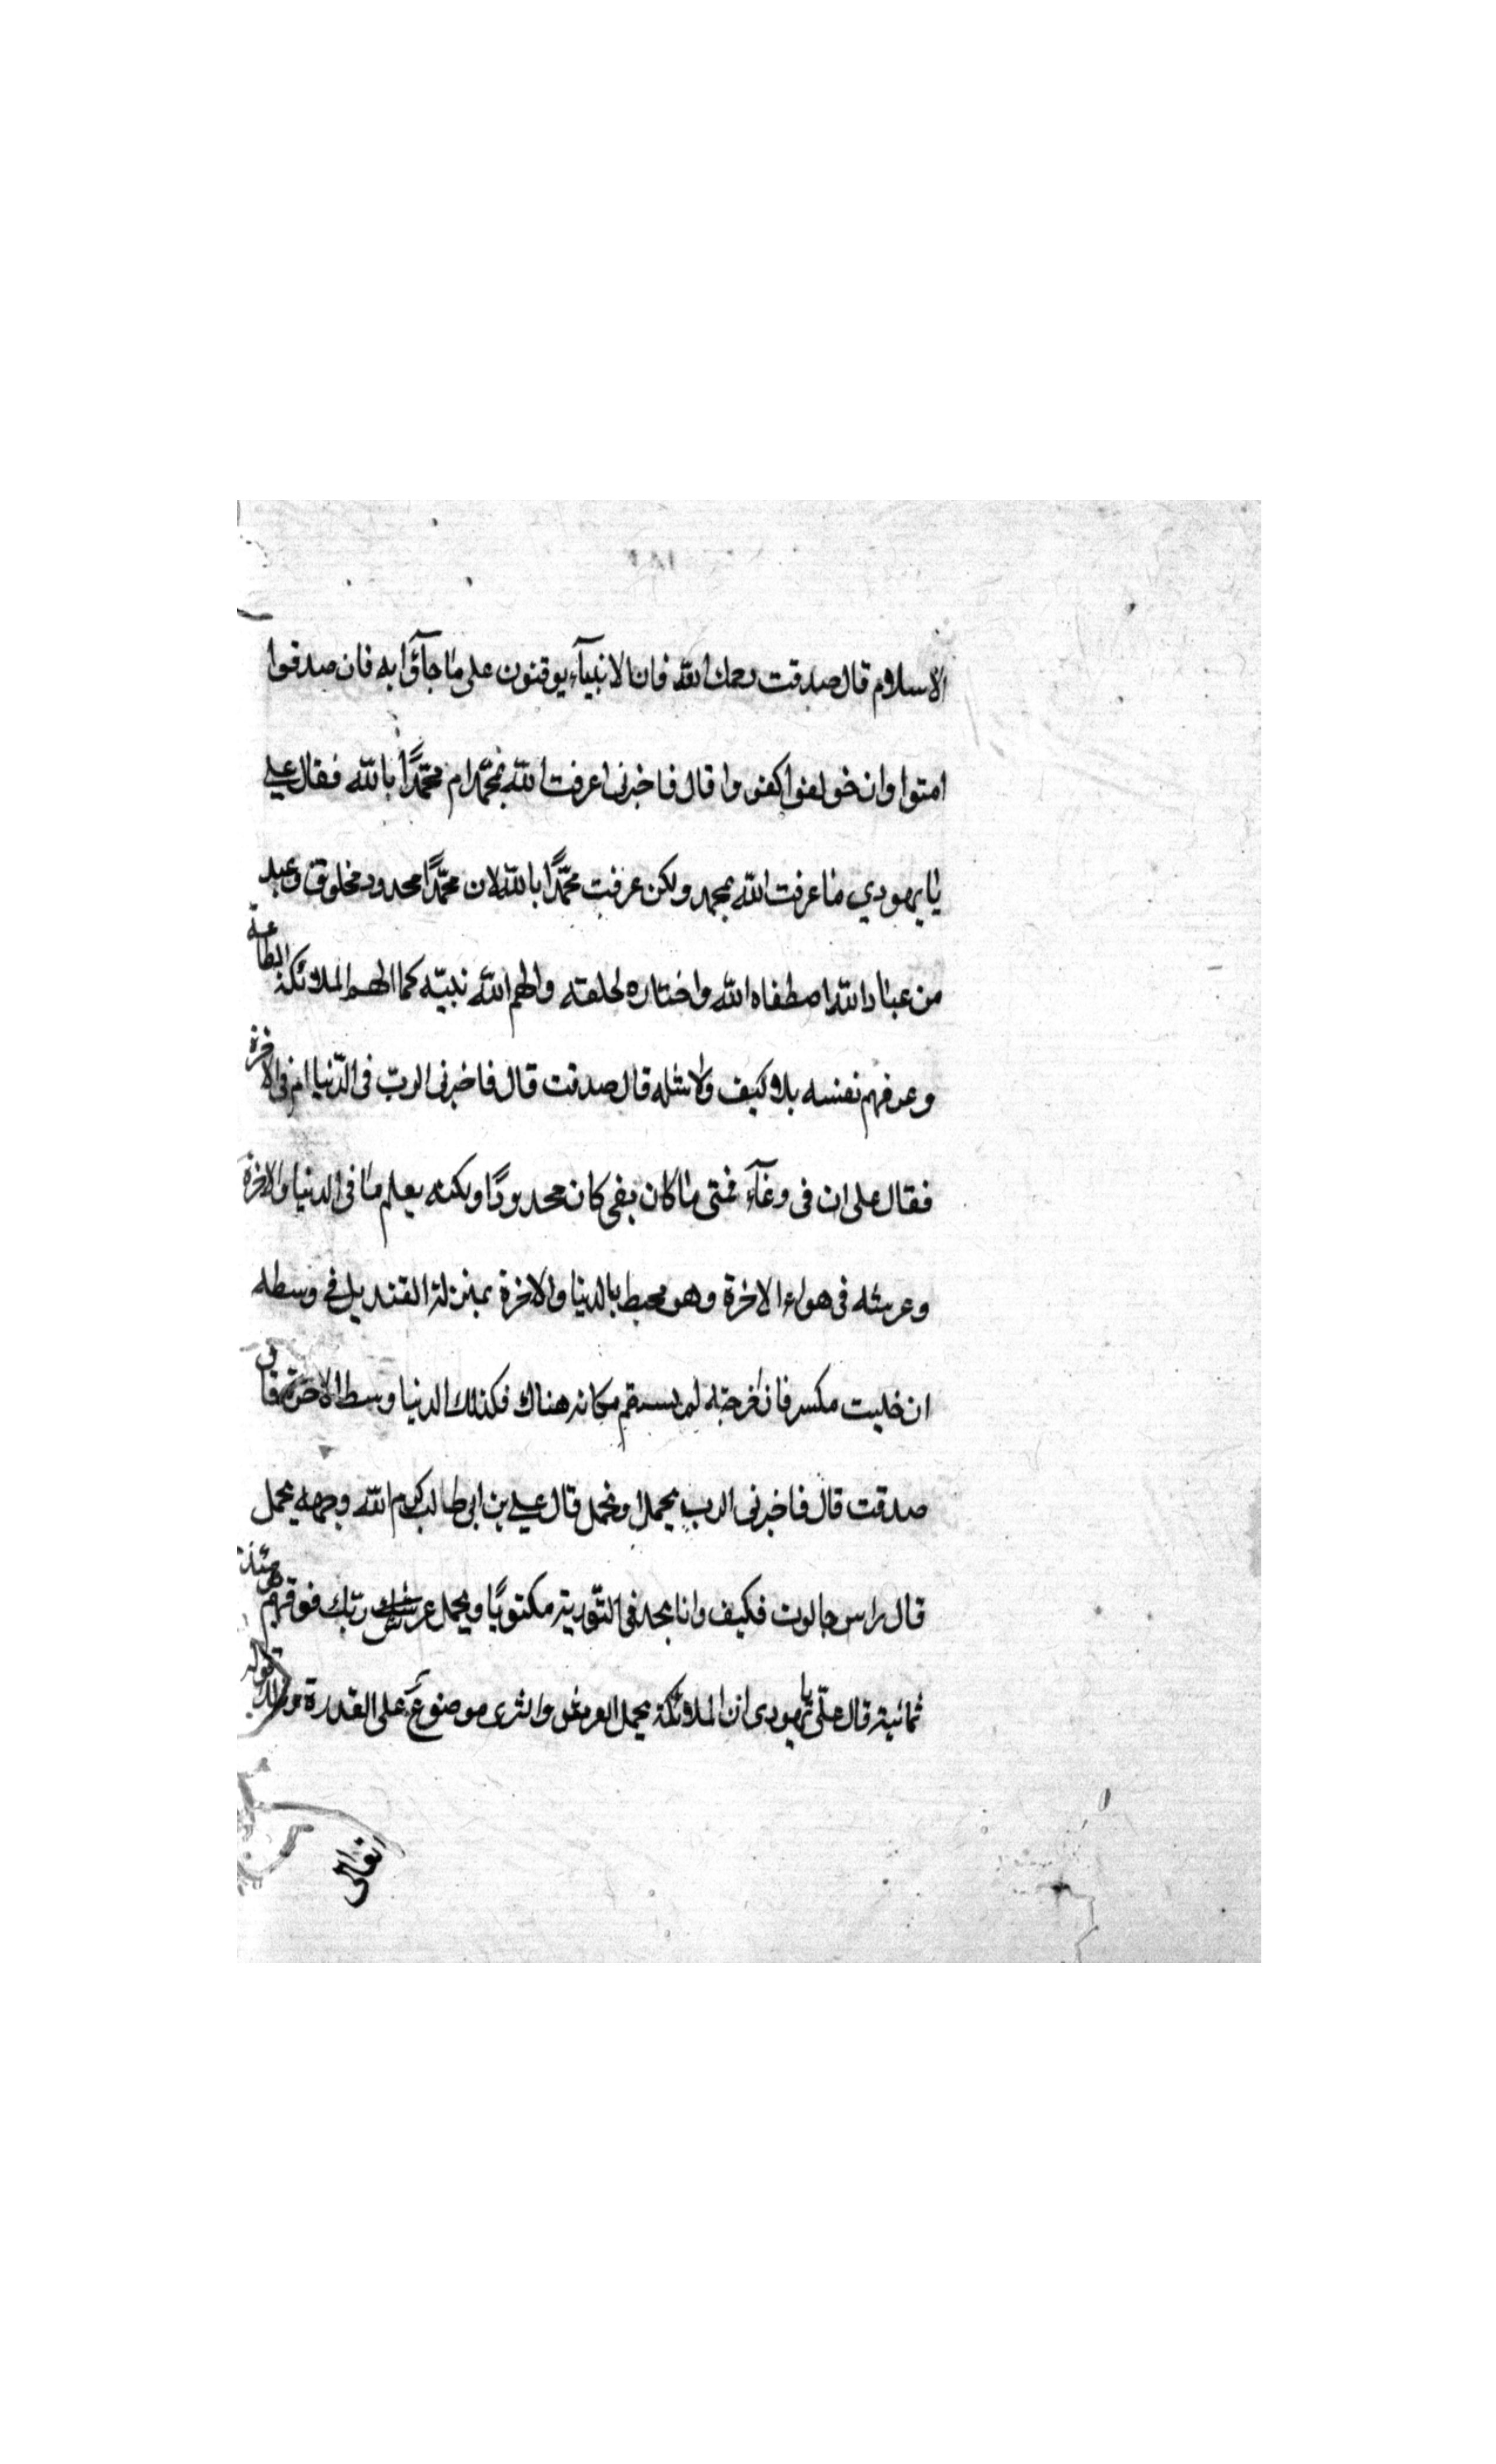 الاسلام قال صدقت رحمك الله فان الانبيآء يوقنون على ما جآؤا به فان صدقوا
امتوا وان خولفوا كفروا قال فاخبرنى اعرفت الله بمحمّد ام محمّدًا بالله فقال على
يا يهودي ما عرفت الله بمحمد ولكن عرفت محمّدًا بالله لان محمّدًا محدود مخلوق وعبد
من عباد الله اصطفاه الله واختاره لخلقه والهم الله نبيّه كما الهم الملائكة الطاعة
وعرفهم نفسه بلا كيف ولا شله قال صدقت قال فاخبرنى الربّ فى الدّنيا ام فى الاخرة
فقال على ان فى وعآء فمتى ما كان بفى كان محدودًا ولكنه يعلم ما فى الدنيا والاخرة
وعرشه فى هواء الاخرة وهو محيط بالدنيا والاخرة بمنزلة القنديل فى وسطه
ان خليت مكسر فان اخرجته لم يستقم مكانه هناك فكذلك الدنيا وسط الاخرة قال
صدقت قال فاخبرنى الرب يحمل او يحمل قال علي بن ابى طالب كرم الله وجهه يحمل
قال راس جالوت فكيف وانا نجد فى التّورية مكتوبًا ويحمل عرش ربّك فوقهم يومئذ
ثمانية قال علىّ يا يهودى ان الملائكة يحمل العرش والثرى موضوع على القدرة وذلك قوله
تعالى